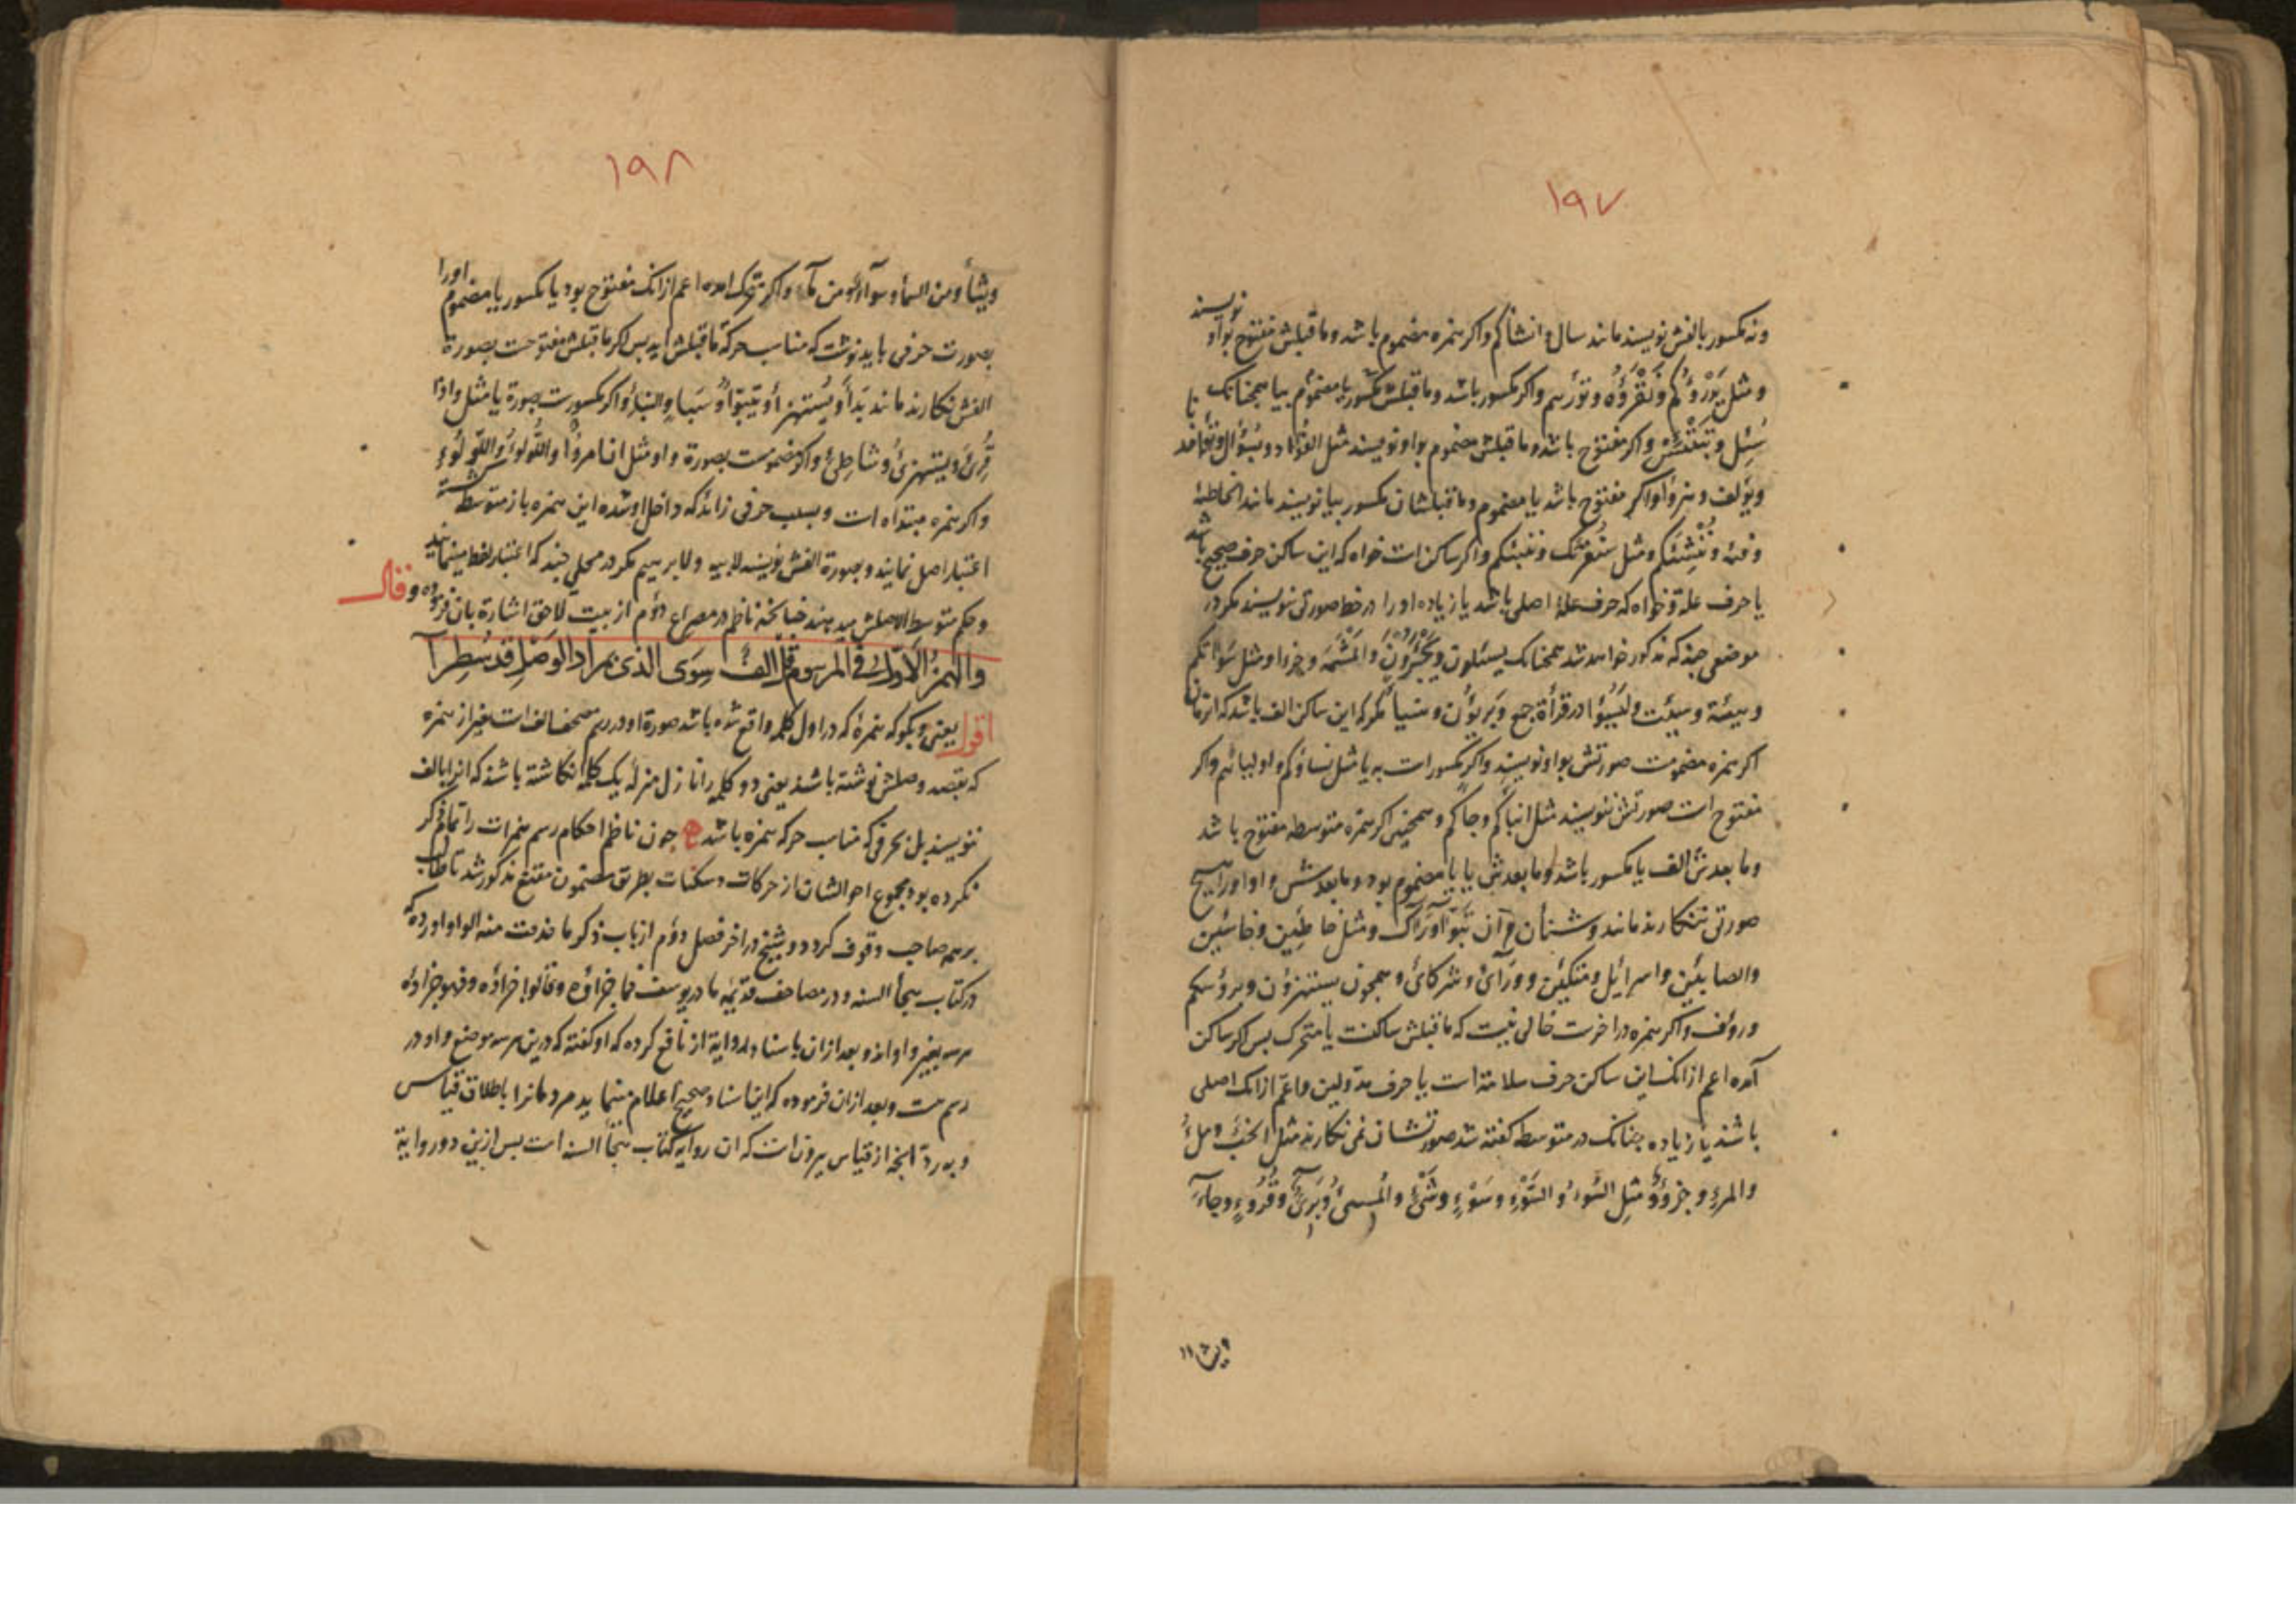 ۱۹۷
ونه مکسور بالفش نویسند مانند سال و انشاکم واکر همزه مضموم باشد وما قبلش مفتوح بواو نویسند
ومثل یَوْزُؤُکُم ونَقْرَؤُه وتوزّهم واکر مکسور باشد وما قبلش مکسور یا مضموم بیا همچنانک
سُئِل وتبتئس واکر مفتوح باشد وما قبلش مضموم بواو نویسند مثل الفؤاد وبسؤال
ویؤلف وهزؤا واکر مفتوح باشد یا مضموم وما قبلشان مکسور بیا نویسند مانند الخاطئة
وفئة وننشئکم ومثل سنقرئک وننبئکم واکر ساکن است خواه که این ساکن حرف صحیح باشد
یا حرف علة وخواه که حرف علة اصلی باشد یا زیاده او را در خط صورتی ننویسند مکر در
موضعی چند که مذکور خواهد شد همچنانک یسئلون ویجئرون والمشئمة وجزءا ومثل سوآتکم
وهیئة وسیئت ولیسؤا در قرأة جمع وبریؤن وهنیا مکر که این ساکن الف باشد که
اکر همزه مضمومست صورتش بواو نویسند واکر مکسور است به یا مثل نساؤکم واولیائهم واکر
مفتوح است صورتش ننویسند مثل ابناکم وجاکم وهمچنین اکر همزه متوسطه مفتوح باشد
وما بعدش الف یا مکسور باشد وما بعدش یا یا مضموم بود وما بعدش واو او را هیچ
صورتی ننکارند مانند وشنأن وقرآن تبوّآ ورآک ومثل خاطئین وخاسئین
والصابئین واسرائیل ومتکئین وورآئ وشرکائ وهمچون یستهزؤن وبرؤسکم
وروئف واکر همزه در اخرست خالی نیست که ما قبلش ساکنست یا متحرک پس اکر ساکن
آمده اعم از انک این ساکن حرف سلامة است یا حرف مد ولین واعم از انک اصلی
باشد یا زیاده چنانک در متوسطه کفته شد صورتشان نمی نکارند مثل الخبء وملء
والمرء وجزء ومثل السّوء والسَّوْء وسَوْء وشیء والمسیء وبریء وقروء وجاء
ویشا
۱۹۸
ویشأ ومن السمأ وسوآء ومن مآء واکر متحرک امده اعم از انک مفتوح بود یا مکسور یا مضموم اورا
بصورت حرفی باید نوشت که مناسب حرکة ما قبلش اید پس اکر ما قبلش مفتوحست بصورة
الفش نکارند مانند بدأ ویستهزأ ویتبوّأ وسبإ والنبإ واکر مکسورست بصورة یا مثل واذا
قُرِئَ ویستهزئ وشاطئ واکر مضمومست بصورة واو مثل ان امرؤا واللؤلؤ واللؤلؤ
واکر همزه مبتداه است وبسبب حرفی زائد که داخل او شده این همزه باز متوسط کشته
اعتبار اصل نمایند وبصورة الفش نویسند لابیه ولابرهیم مکر در محلی چند که اعتبار لفظ مینمایند
وحکم متوسط الاصلش میدهند چنانچه ناظم در مصراع دؤم از بیت لاحق اشارة بان فرموده وقال
والهمزُ الاوّلُ فی المرسوم قل الفٌ سِوَی الذی بمراد الوَصْلِ قد سُطِرآ
اقول یعنی وبکو که همزۀ که در اول کلمه واقع شده باشد صورة او در رسم مصحف الف است بغیر از همزه
که بقصد وصلش نوشته باشند یعنی دو کلمه را نازل منزلۀ یک کلمه انکاشته باشند که انرا بالف
ننویسند بل بحرفی که مناسب حرکه همزه باشد چون ناظم احکام رسم همزات را تمام ذکر
نکرده بود مجموع احوالشان از حرکات وسکنات بطریق مضمون مقنع مذکور شد تا طالب
برسم صاحب وقوف کردد وشیخ در اخر فصل دؤم از باب ذکر ما حذفت منه الواو اورده که
در کتاب هجأ السنه ودر مصاحف قدیمه ما در یوسف فما جزاؤه وقالوا جزاؤه وفهو جزاؤه
هر سه بغیر واو اند وبعد از ان باسناد او روایة از نافع کرده که او کفته که درین هر سه موضع واو در
رسم هست وبعد از ان فرموده که این اسناد صحیح اعلام مینماید مردمانرا باطلاق قیاس
وبه ردّ انچه از قیاس بیرونست که ان روایه کتاب هجأ السنه است پس ازین دو روایة